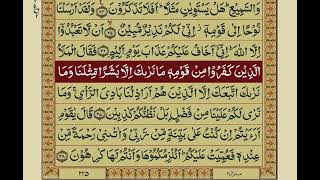 وَالسَّمِيْعِ ؕ هَلْ يَسْتَوِيٰنِ مَثَلًا ؕ اَفَلَا تَذَكَّرُوْنَ ﴿۲۴﴾ وَلَقَدْ اَرْسَلْنَا
نُوْحًا اِلٰى قَوْمِهٖۤ اِنِّىْ لَكُمْ نَذِيْرٌ مُّبِيْنٌ ﴿۲۵﴾ اَنْ لَّا تَعْبُدُوْۤا
اِلَّا اللّٰهَ ؕ اِنِّىْۤ اَخَافُ عَلَيْكُمْ عَذَابَ يَوْمٍ اَلِيْمٍ ﴿۲۶﴾ فَقَالَ الْمَلَاُ
الَّذِيْنَ كَفَرُوْا مِنْ قَوْمِهٖ مَا نَرٰىكَ اِلَّا بَشَرًا مِّثْلَنَا وَمَا
نَرٰىكَ اتَّبَعَكَ اِلَّا الَّذِيْنَ هُمْ اَرَاذِلُنَا بَادِىَ الرَّاْىِ ۚ وَمَا
نَرٰى لَكُمْ عَلَيْنَا مِنْ فَضْلٍۢ بَلْ نَظُنُّكُمْ كٰذِبِيْنَ ﴿۲۷﴾ قَالَ يٰقَوْمِ
اَرَءَيْتُمْ اِنْ كُنْتُ عَلٰى بَيِّنَةٍ مِّنْ رَّبِّىْ وَاٰتٰىنِىْ رَحْمَةً مِّنْ
عِنْدِهٖ فَعُمِّيَتْ عَلَيْكُمْ ؕ اَنُلْزِمُكُمُوْهَا وَاَنْتُمْ لَهَا كٰرِهُوْنَ ﴿۲۸﴾
۲۲۵